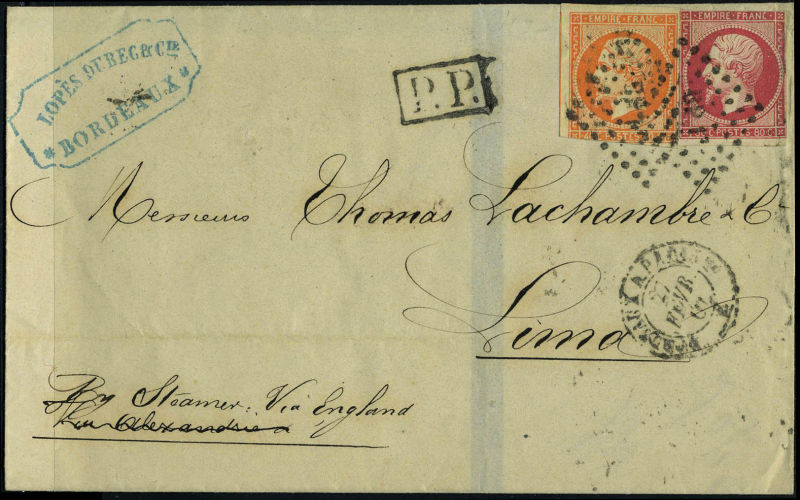 LOPÈS DUBEC & CIE
* BORDEAUX *
P.P.
EMPIRE FRANC
EMPIRE FRANC
POSTES 80 C
Messieurs Thomas Lachambre & C
Lima
FEVR
By Steamer Via England
Alexandrie